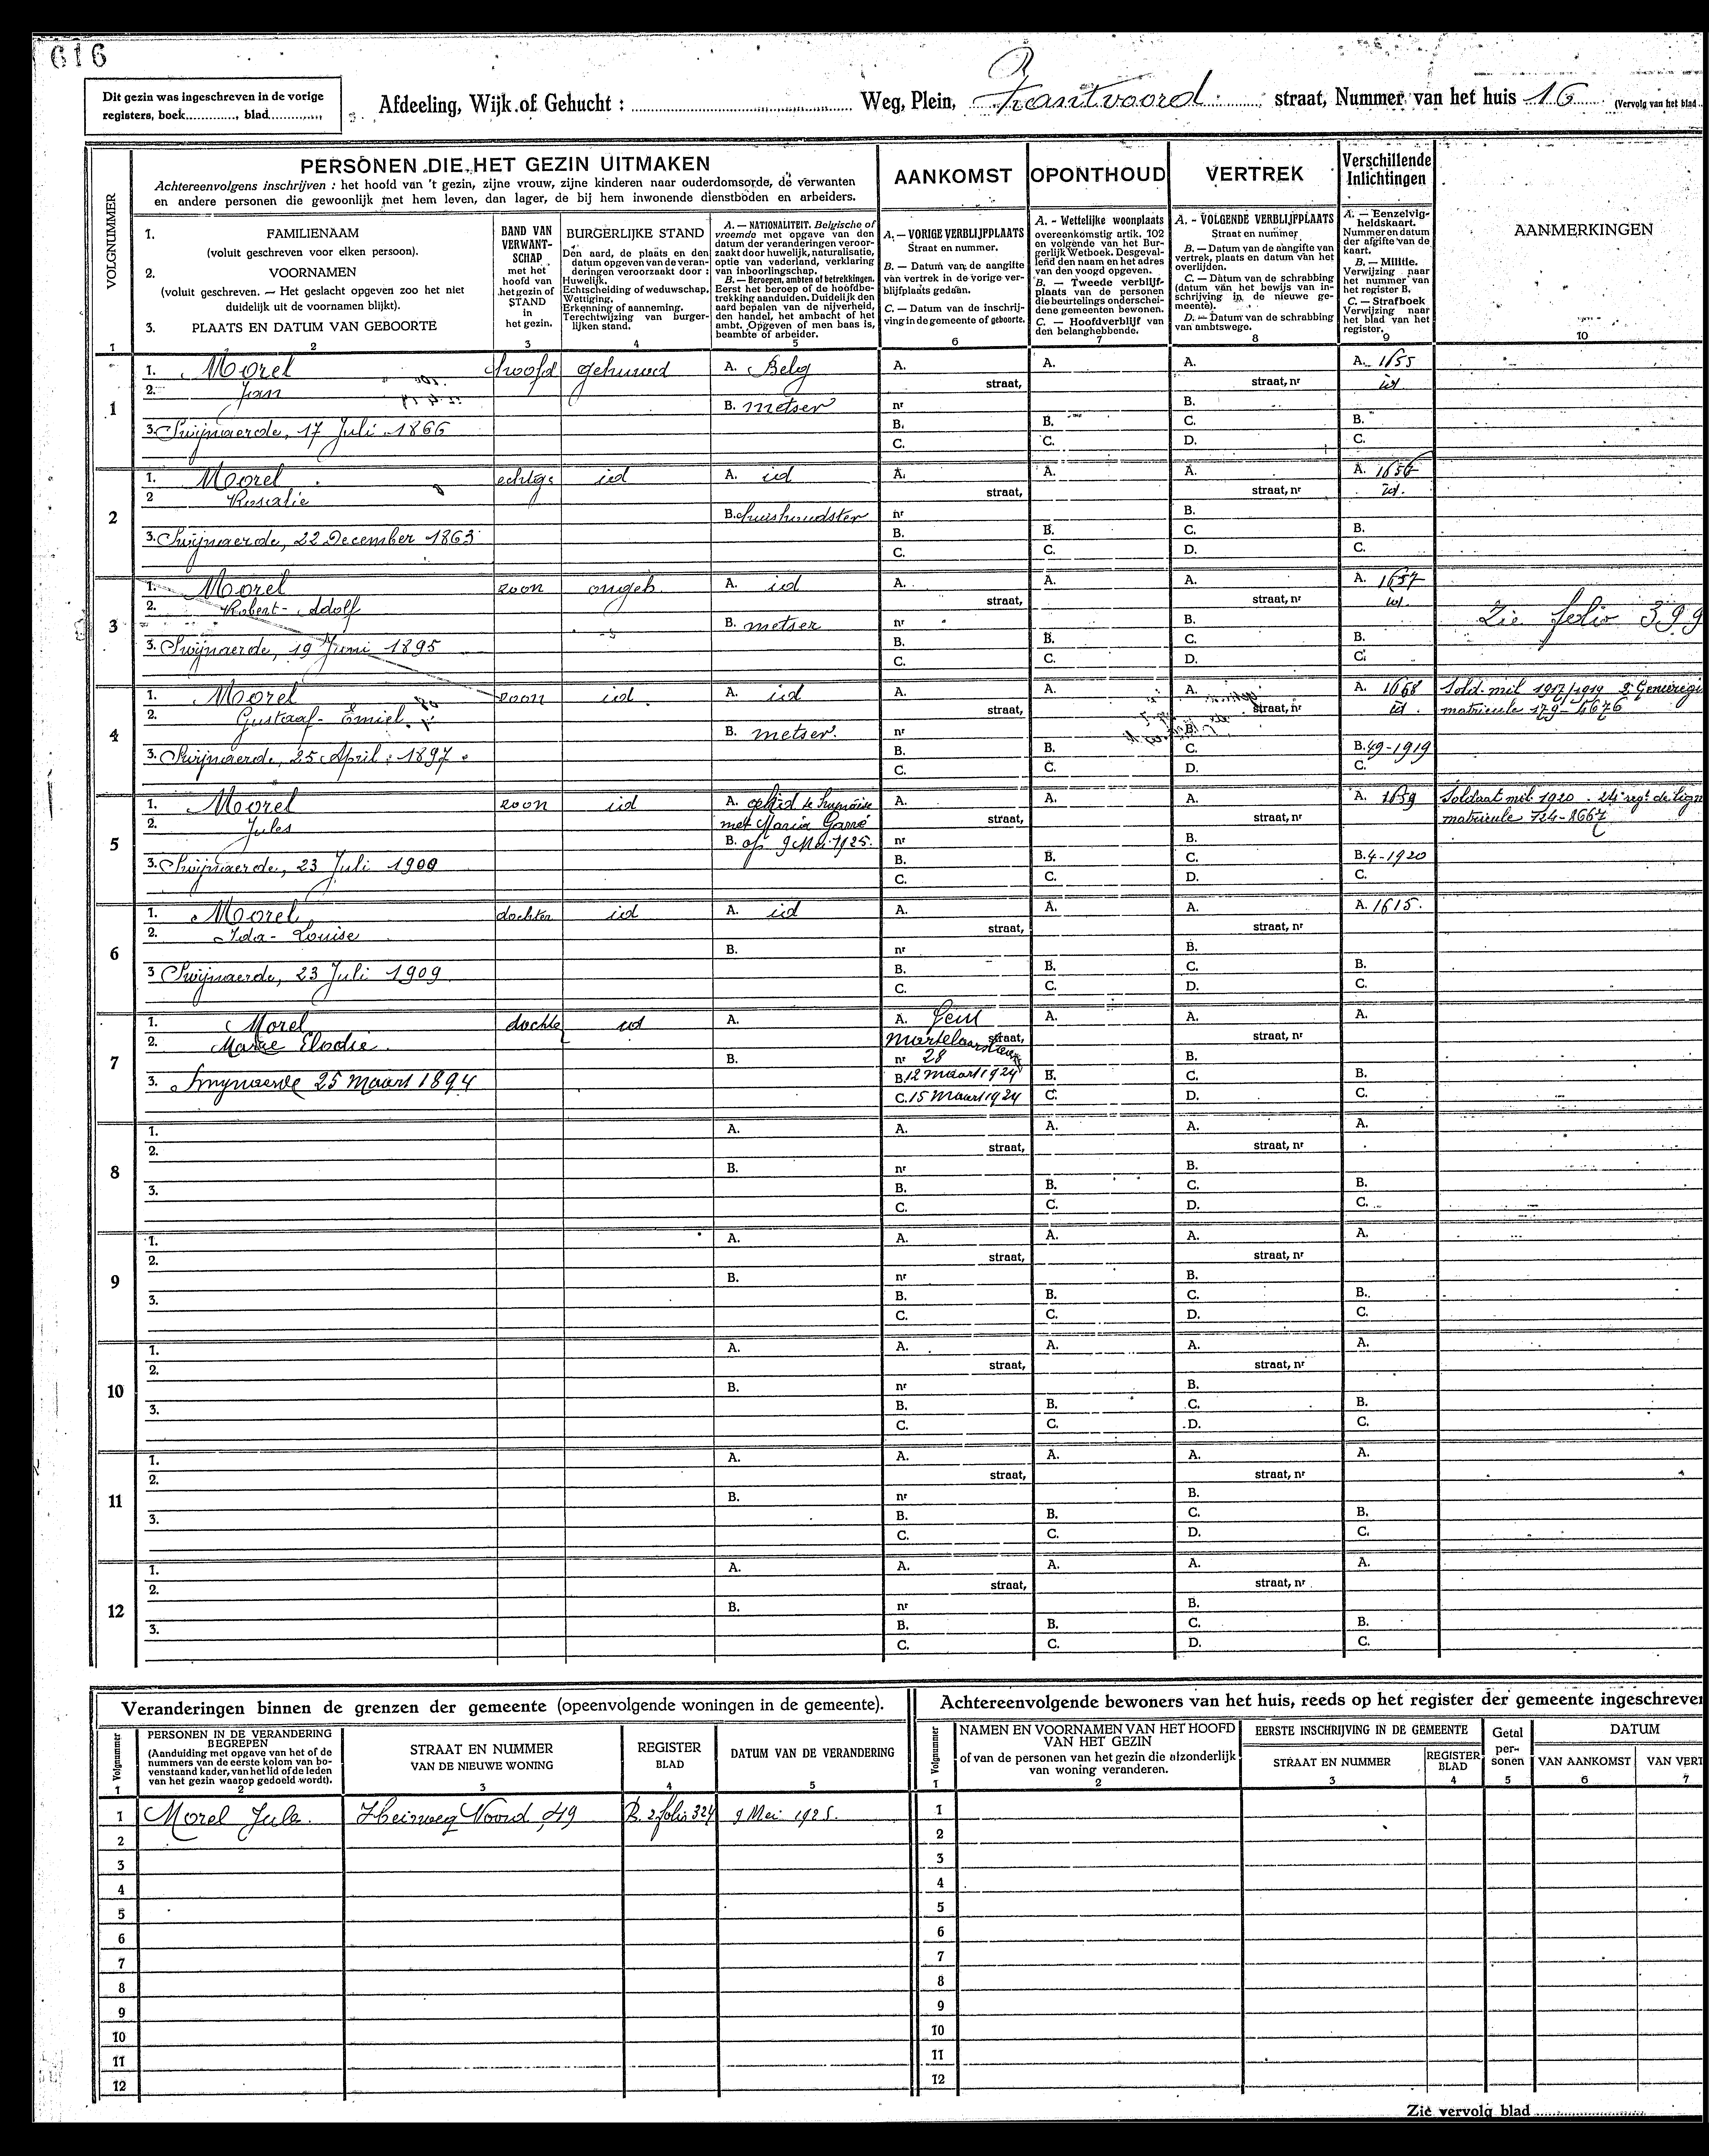 616
Dit gezin was ingeschreven in de vorige
registers, boek............, blad............,
Afdeeling, Wijk of Gehucht : .......... Weg, Plein, Zantvoord straat, Nummer van het huis 16 (Vervolg van het blad
VOLGNUMMER
PERSONEN DIE HET GEZIN UITMAKEN
Achtereenvolgens inschrijven : het hoofd van 't gezin, zijne vrouw, zijne kinderen naar ouderdomsorde, de verwanten
en andere personen die gewoonlijk met hem leven, dan lager, de bij hem inwonende dienstboden en arbeiders.
AANKOMST
OPONTHOUD
VERTREK
Verschillende
Inlichtingen
AANMERKINGEN
1. FAMILIENAAM
(voluit geschreven voor elken persoon).
2. VOORNAMEN
(voluit geschreven. — Het geslacht opgeven zoo het niet
duidelijk uit de voornamen blijkt).
3. PLAATS EN DATUM VAN GEBOORTE
BAND VAN
VERWANT-
SCHAP
met het
hoofd van
het gezin of
STAND
in
het gezin.
BURGERLIJKE STAND
Den aard, de plaats en den
datum opgeven van de veran-
deringen veroorzaakt door :
Huwelijk.
Echtscheiding of weduwschap.
Wettiging.
Erkenning of aanneming.
Terechtwijzing van burger-
lijken stand.
A. — NATIONALITEIT. Belgische of
vreemde met opgave van den
datum der veranderingen veroor-
zaakt door huwelijk, naturalisatie,
optie van vaderland, verklaring
van inboorlingschap.
B. — Beroepen, ambten of betrekkingen.
Eerst het beroep of de hoofdbe-
trekking aanduiden. Duidelijk den
aard bepalen van de nijverheid,
den handel, het ambacht of het
ambt. Opgeven of men baas is,
beambte of arbeider.
A. — VORIGE VERBLIJFPLAATS
Straat en nummer.
B. — Datum van de aangifte
van vertrek in de vorige ver-
blijfplaats gedaan.
C. — Datum van de inschrij-
ving in de gemeente of geboorte.
A. - Wettelijke woonplaats
overeenkomstig artik. 102
en volgende van het Bur-
gerlijk Wetboek. Desgeval-
lend den naam en het adres
van den voogd opgeven.
B. — Tweede verblijf-
plaats van de personen
die beurtelings onderschei-
dene gemeenten bewonen.
C. — Hoofdverblijf van
den belanghebbende.
A. - VOLGENDE VERBLIJFPLAATS
Straat en nummer
B. — Datum van de aangifte van
vertrek, plaats en datum van het
overlijden.
C. — Datum van de schrabbing
(datum van het bewijs van in-
schrijving in de nieuwe ge-
meente).
D. — Datum van de schrabbing
van ambtswege.
A. — Eenzelvig-
heldskaart.
Nummer en datum
der afgifte van de
kaart.
B. — Militie.
Verwijzing naar
het nummer van
het register B.
C. — Strafboek
Verwijzing naar
het blad van het
register.
1 2 3 4 5 6 7 8 9 10
1
1. Morel hoofd gehuwd A. Belg A. A. A. A. 1655
2. Jan straat, straat, nr id
B. metser nr B.
3. Swijnaerde, 17 Juli 1866 B. B. C. B.
C. C. D. C.
2
1. Morel echtge id A. id A. A. A. A. 1656
2 Rosalie straat, straat, nr id.
B. huishoudster nr B.
3. Swijnaerde, 22 December 1863 B. B. C. B.
C. C. D. C.
3
1. Morel zoon ongeh. A. id A. A. A. A. 1657
2. Robert- Adolf straat, straat, nr id.
B. metser nr B. Zie folio 399
3. Swijnaerde, 19 Juni 1895 B. B. C. B.
C. C. D. C.
4
1. Morel zoon id A. id A. A. A. A. 1658 Sold. mil 1917/1919
2. Gustaaf- Emiel. straat, straat, nr id. matricule 179-4676
B. metser. nr B.
3. Swijnaerde, 25 April 1897. B. B. C. B. 49-1919
C. C. D. C.
5
1. Morel zoon id A. A. A. A. A. 1659 Soldaat mil 1920 . 24e regt de lign
2. Jules met Maria Garré straat, straat, nr matricule 724-8667
B. op 9 Mei 1925. nr B.
3. Swijnaerde, 23 Juli 1900 B. B. C. B. 4-1920
C. C. D. C.
6
1. Morel dochter id A. id A. A. A. A. 1615.
2. Ida- Louise straat, straat, nr
B. nr B.
3 Swijnaerde, 23 Juli 1909 B. B. C. B.
C. C. D. C.
7
1. Morel dochte id A. A. Gent A. A. A.
2. Marie Elodie. straat, straat, nr
B. nr 28 B.
3. Swynaerde 25 Maart 1894 B. 12 maart 1924 B. C. B.
C. 15 Maart 1924 C. D. C.
8
1. A. A. A. A. A.
2. straat, straat, nr
B. nr B.
3. B. B. C. B.
C. C. D. C.
9
1. A. A. A. A. A.
2. straat, straat, nr
B. nr B.
3. B. B. C. B.
C. C. D. C.
10
1. A. A. A. A. A.
2. straat, straat, nr
B. nr B.
3. B. B. C. B.
C. C. D. C.
11
1. A. A. A. A. A.
2. straat, straat, nr
B. nr B.
3. B. B. C. B.
C. C. D. C.
12
1. A. A. A. A. A.
2. straat, straat, nr
B. nr B.
3. B. B. C. B.
C. C. D. C.
Veranderingen binnen de grenzen der gemeente (opeenvolgende woningen in de gemeente).
Volgnummer
PERSONEN IN DE VERANDERING
BEGREPEN
(Aanduiding met opgave van het of de
nummers van de eerste kolom van bo-
venstaand kader, van het lid of de leden
van het gezin waarop gedoeld wordt).
STRAAT EN NUMMER
VAN DE NIEUWE WONING
REGISTER
BLAD
DATUM VAN DE VERANDERING
1 2 3 4 5
1 Morel Jule. Heirweg Noord, 49 R. 2 folio 324 9 Mei 1925.
2
3
4
5
6
7
8
9
10
11
12
Achtereenvolgende bewoners van het huis, reeds op het register der gemeente ingeschreven
Volgnummer
NAMEN EN VOORNAMEN VAN HET HOOFD
VAN HET GEZIN
of van de personen van het gezin die afzonderlijk
van woning veranderen.
EERSTE INSCHRIJVING IN DE GEMEENTE
STRAAT EN NUMMER
REGISTER
BLAD
Getal
per-
sonen
DATUM
VAN AANKOMST
VAN VERT
1 2 3 4 5 6 7
1
2
3
4
5
6
7
8
9
10
11
12
Zie vervolg blad ....................